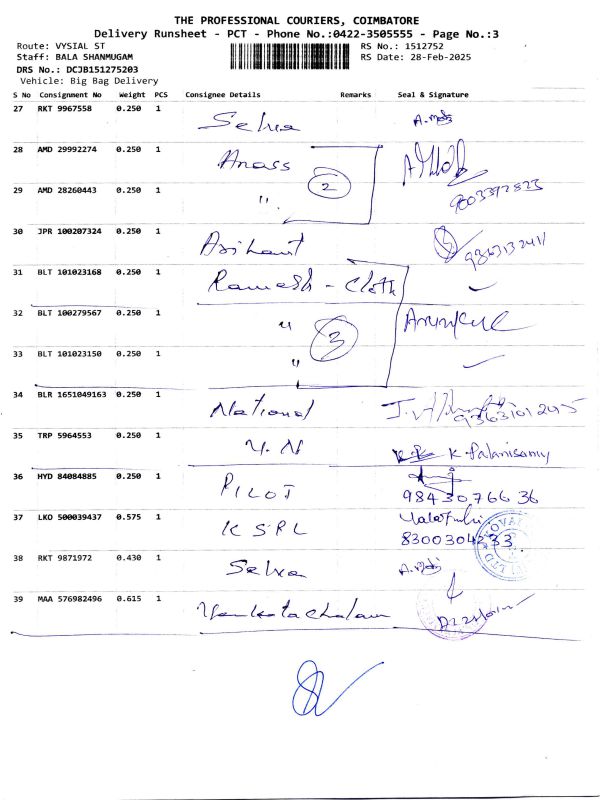 THE PROFESSIONAL COURIERS, COIMBATORE
Delivery Runsheet - PCT - Phone No.:0422-3505555 - Page No.:3
Route: VYSIAL ST RS No.: 1512752
Staff: BALA SHANMUGAM RS Date: 28-Feb-2025
DRS No.: DCJB151275203
Vehicle: Big Bag Delivery
S No Consignment No Weight PCS Consignee Details Remarks Seal & Signature
27 RKT 9967558 0.250 1 Selva
28 AMD 29992274 0.250 1 Anass 2
29 AMD 28260443 0.250 1 "
30 JPR 100207324 0.250 1 Arihant 9363132411
31 BLT 101023168 0.250 1 Ramesh - Cloth
32 BLT 100279567 0.250 1 " 3
33 BLT 101023150 0.250 1 "
34 BLR 1651049163 0.250 1 National
35 TRP 5964553 0.250 1 K Palanisamy
36 HYD 84084885 0.250 1 PILOT 9843076636
37 LKO 500039437 0.575 1 KSRL 8300304233
38 RKT 9871972 0.430 1 Selva
39 MAA 576982496 0.615 1 Venkatachalam